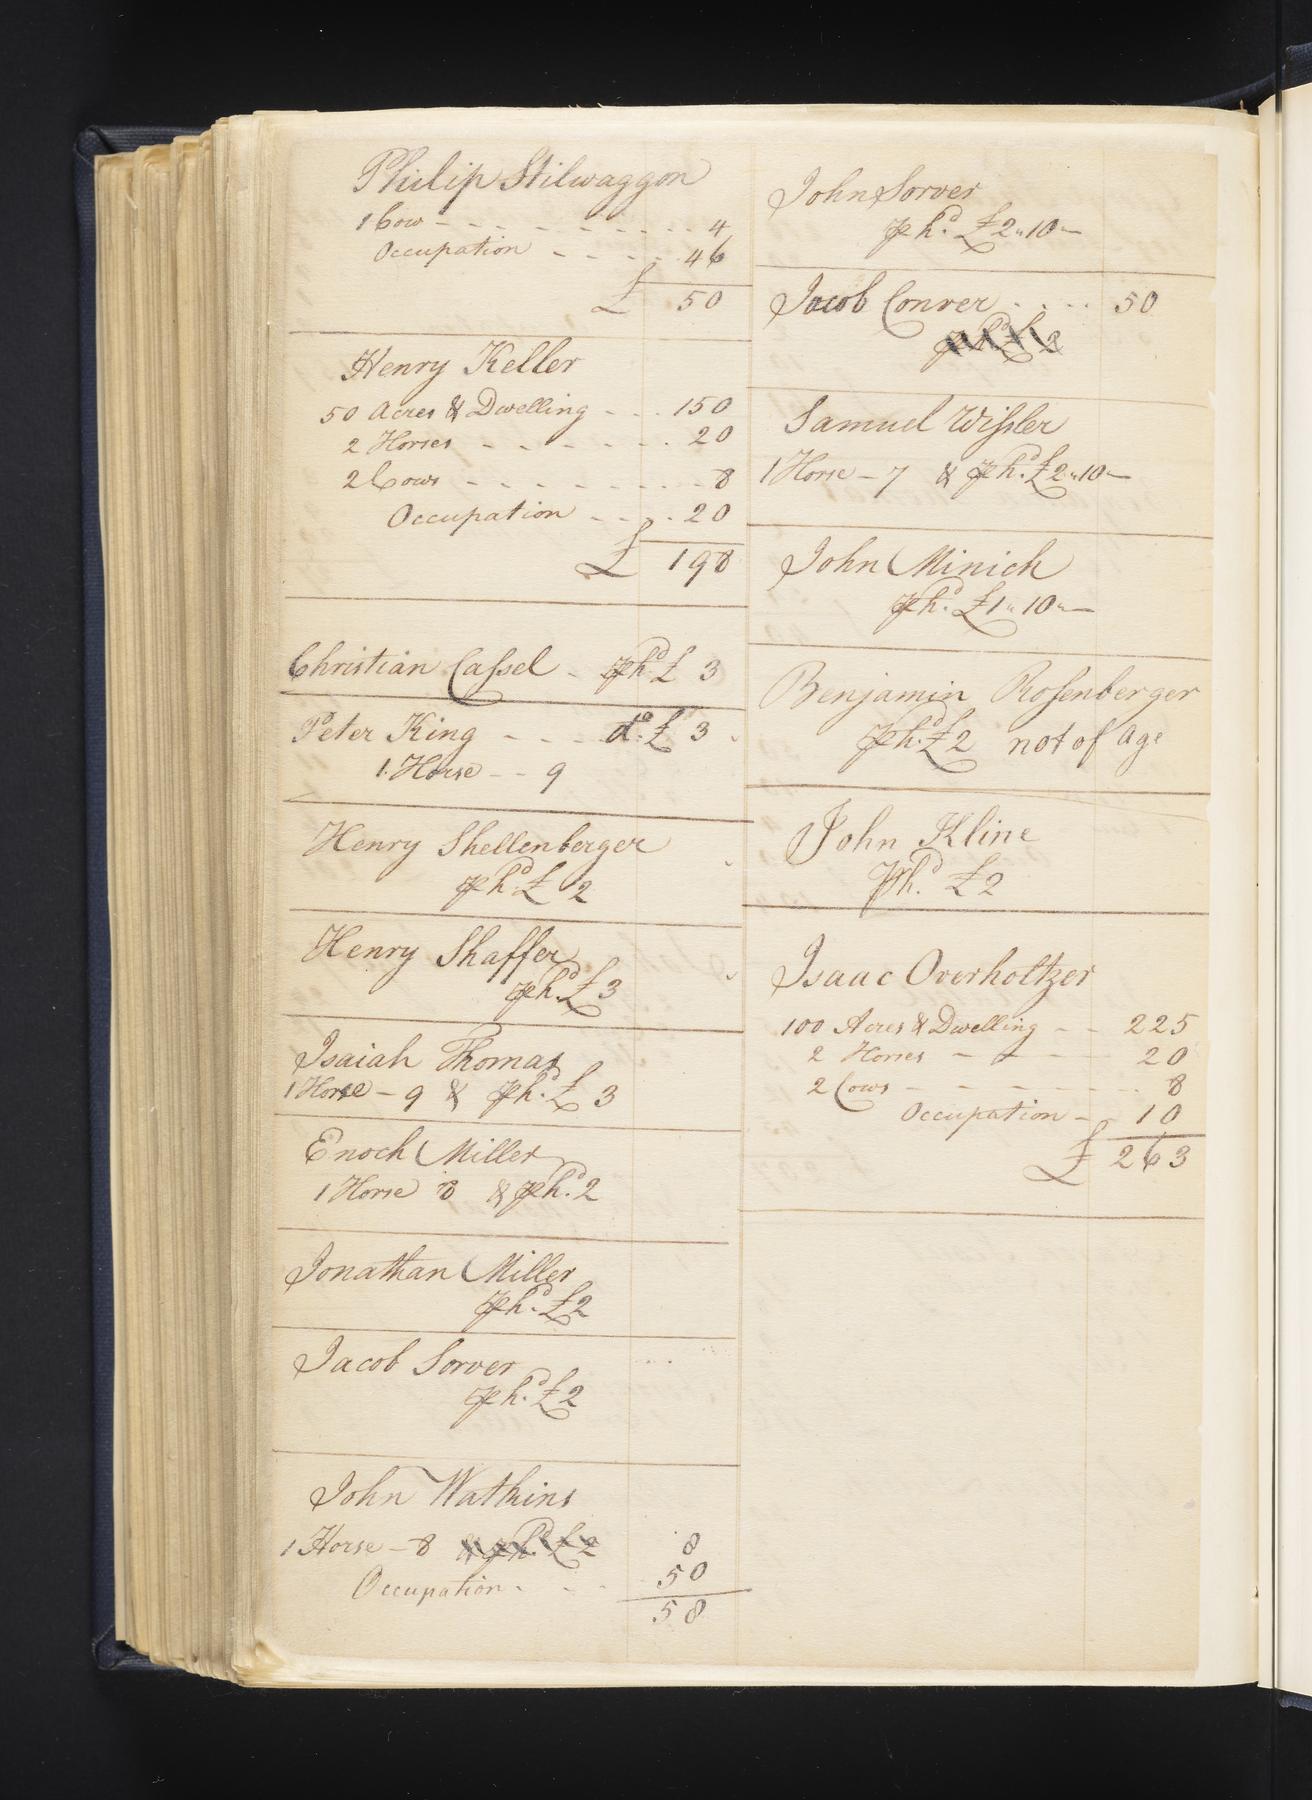 Philip Stilwaggon
1 Cow - - - - - - - - - - 4
Occupation - - - - - 46
£ 50
Henry Keller
50 Acres & Dwelling - - . 150
2 Horses - - - - - - . 20
2 Cows - - - - - - - - - 8
Occupation - - - . 20
£ 198
Christian Caſsel - ₱hd. £ 3
Peter King - - - do. £ 3
1. Horse - - 9
Henry Shellenberger
₱hd. £ 2
Henry Shaffer
₱hd. £ 3
Isaiah Thomas
1 Horse - 9 & ₱hd. £ 3
Enoch Miller
1 Horse 8 & ₱hd. 2
Jonathan Miller
₱hd. £2
Jacob Sorver
₱hd. £2
John Watkins
1 Horse - 8 & ₱hd. £2 8
Occupation - - - 50
58
John Sorver
₱hd. £2„10-
Jacob Conver . . . . 50
₱hd. £2
Samuel Wiſsler
1 Horse - 7 & ₱hd. £2„10-
John Minich
₱hd. £1„10„-
Benjamin Roſenberger
₱hd. £2 not of age
John Kline
₱hd. £2
Isaac Overholtzer
100 Acres & Dwelling - - 225
2 Horses - - - - 20
2 Cows - - - - - - - 8
Occupation - 10
£ 263